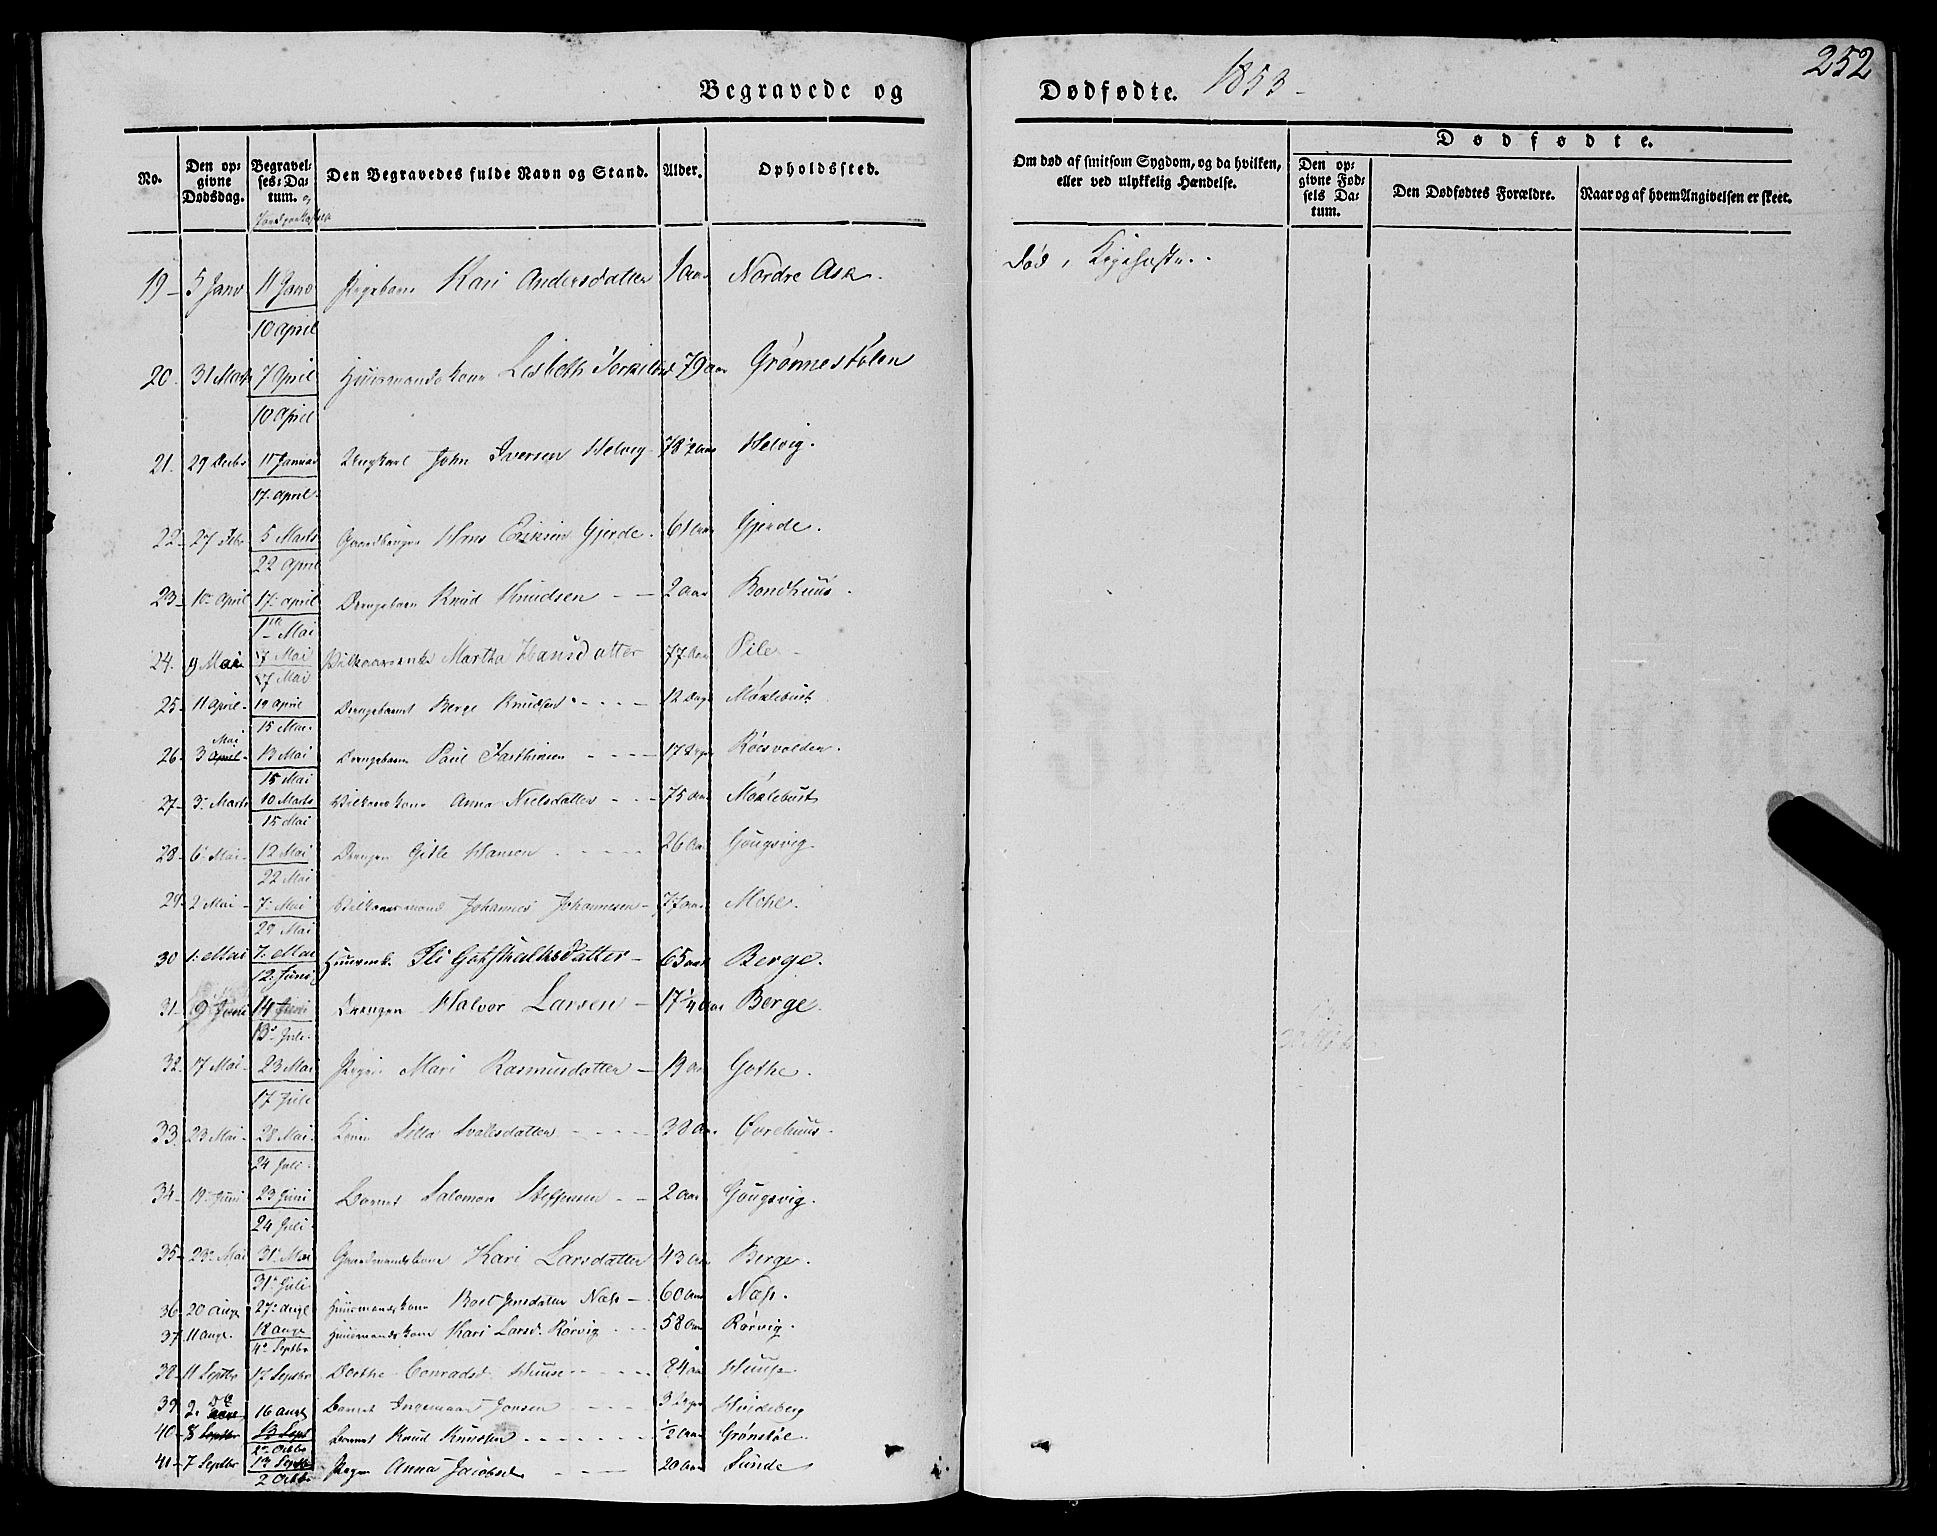 252
Begravede og Dødfødte. 1853
No. Den opgivne Dødsdag. Begravelses-Datum. og Den Begravedes fulde Navn og Stand. Alder. Opholdssted. Om død af smitsom Sygdom, og da hvilken, eller ved ulykkelig Hændelse.
Dødfødte.
Den opgivne Fødsels Datum. Den Dødfødtes Forældre. Naar og af hvem Angivelsen er skeet.
19 5 Janv 11 Janv Pigebarn Kari Andersdatter 1 aar Nordre Ask. Død i
10 April
20. 31 Marts 7 April Huusmandskone Lisbeth 79 aar Grønnestølen
10 April
21. 29 Decbr 11 Januar Ungkarl John Iversen Helvig 78 1/2 aar Helvig.
17. April
22 27 Febr 5 Marts Hans Eriksen Gjerde. 61 aar Gjerde.
22 April
23 10 April 17 April Drengebarn Knud Knudsen 2 aar Bondhuus.
1ste Mai
24. 9 Mai 7 Mai Martha Hansdatter 77 aar Pile
7 Mai
25 11 April 19 April Drengebarnet Berge Knudsen 12 Dage Møxlebust
15 Mai
26 3 Mai April 13 Mai Drengebarn Paul 17 Dage Røesvolden.
15 Mai
27 3 Marts 10 Marts Anna Nielsdatter 75 aar Møxlebust
15 Mai
28 6 Mai 12 Mai Drengen Gitle Hansen 26 aar Gøugsvig.
22 Mai
29 2 Mai 7 Mai Johannes Johannesen 77 aar Mehl.
29 Mai
30 1 Mai 7 Mai Ili Gotskalksdatter 65 aar Berge.
12 Juni
31 9 Juni 14 Juni Drengen Halvor Larsen 17 1/4 aar Berge.
13 Juli
32. 17 Mai 23 Mai Pigen Mari Rasmusdatter 19 aar Gothe.
17 Juli
33. 23 Mai 28 Mai Konen 38 aar Øvrehuus
24 Juli
34 19 Juni 23 Juni Barnet Salomon Steffensen 2 aar Gøugsvig.
24 Juli
35 23 Mai 31 Mai Gaardmandskone Kari Larsdatter 43 aar Berge.
31 Juli
36 20 Aug 27 Aug Huusmandskone Jensdatter Næss 60 aar Næss.
37 11 Aug. 18 Aug Huusmandskone Kari Larsd. Rørvig 58 aar Rørvig.
4 Septbr
38 11 Septbr 17 Septbr Dorthe Conradsd. Huuse 84 aar Huuse
39 2 16 Aug Barnet Ingemaar Jonsen 3 Dage Hvideberg
40 8 Septbr 13 Sept Barnet Knud Knudsen 1/2 aar Grønstøl
2 Octbr
41 7 Septbr 12 Septbr Pigen Anna Jacobsd. 20 aar Sunde
2 Octbr